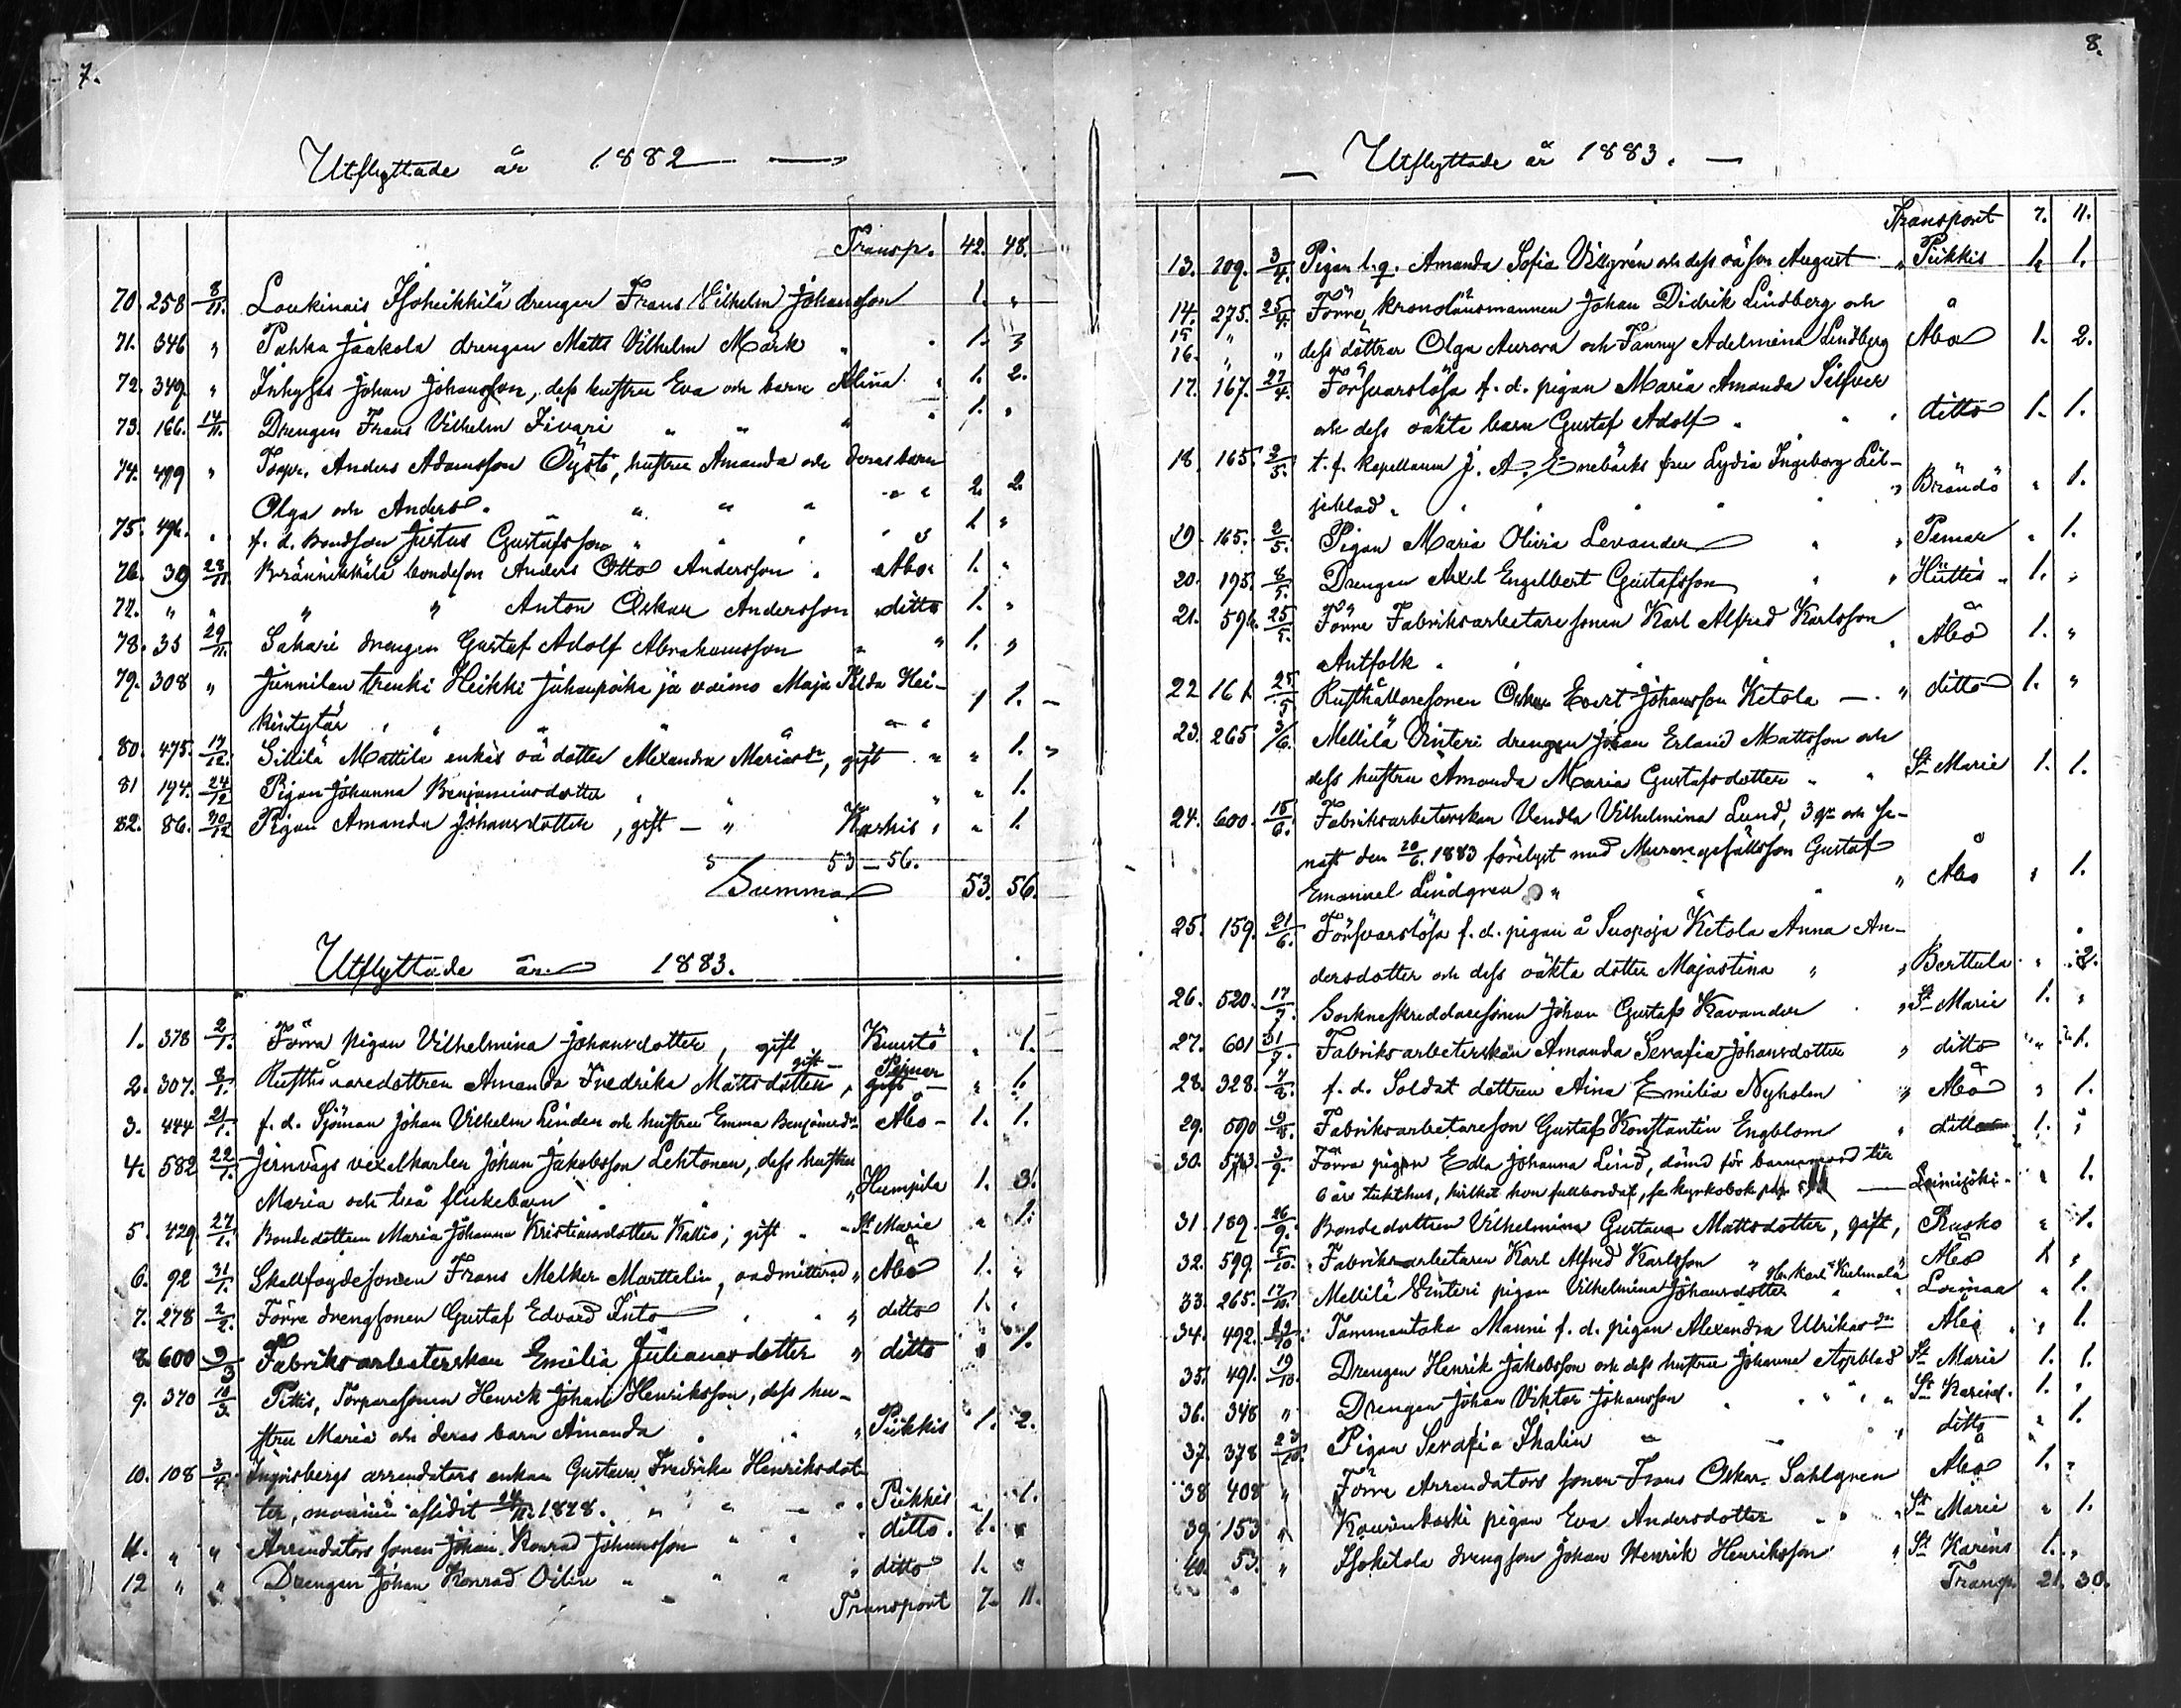 7.
Utflyttade år 1882
Transp. 42. 48.
70. 258 8/11. Loukinais Isoheikkilä drengen Frans Vilhelm Johansson 1. "
71. 346 " Pahka Jaakola drengen Matts Vilhelm Mark " " 1. "
72. 349 " Inhyses Johan Johansson, dess hustru Eva och barn Alina " 1. 2.
73. 166. 14/11. Drengen Frans Vilhelm Iivari " " " " 1. "
74. 499 " Torpr. Anders Adamsson Öysti, hustru Amanda och deras barn
Olga och Anders " " " " 2. 2.
75. 496. " f. d. Bondson Justus Gustafsson " " " 1. "
76. 39 28/11 Brännikkälä bondeson Anders Otto Andersson " Åbo 1. "
77. " " " " Anton Oskar Andersson ditto 1. "
78. 35 29/11. Sakari drengen Gustaf Adolf Abrahamsson " " 1. "
79. 308 " Junnilan trenki Heikki Juhanpoika ja vaimo Maja Hei-
kintytär " " " " 1 1. -
80. 475. 17/12. Sillilä Mattila enkas oä dotter Alexandra Mariasdr, gift " " 1.
81 194. 24/12 Pigan Johanna Benjaminsdotter " " " " 1.
82. 86. 30/12 Pigan Amanda Johansdotter, gift - " Karkis " " 1.
53 - 56.
Summa 53. 56.
Utflyttade år 1883.
1. 378 2/1. Förra pigan Vilhelmina Johansdotter, gift Kuustö " 1.
2. 307. 8/1. Rusthållaredottren Amanda Fredrika Mattsdotter, gift - Pemar " 1.
3. 444 21/1. f. d. Sjöman Johan Vilhelm Linden och hustru Emma Benjamsdr Åbo - 1. 1.
4. 582 22/1. Jernvägs vexelkarlen Johan Jakobsson Lehtonen, dess hustru
Maria och två flickebarn " " Humpila 1. 3.
5. 429 27/1. Bondedottren Maria Johanna Kristiansdotter Kallis, gift " St Marie " 1.
6. 92 31/1. Skallfogdesonen Frans Melker Marttelin, oadmitterad " Åbo 1. "
7. 278 2/2. Förre drengsonen Gustaf Edvard Into " " ditto 1. "
8. 600 9/3 Fabriksarbeterskan Emilia Julianasdotter " ditto " 1.
9. 370 10/3. Pittis, Torparesonen Henrik Johan Henriksson, dess hu-
stru Maria och deras barn Amanda " " " Piikkis 1. 2.
10. 108 3/4. Ingvisbergs arrendators enkan Gustava Fredrika Henriksdot-
ter, mannen aflidit 24/11 1878. " " " Piikkis " 1.
11. " " Arrendators sonen Johan Konrad Johansson " " " ditto. 1. "
12 " " Drengen Johan Konrad Oilin " " " " ditto 1. "
Transport 7. 11.
8.
Utflyttade år 1883.
Transport 7. 11.
13. 109. 3/4. Pigan l. q. Amanda Sofia Villgrén och dess oä son August " Piikkis 1. 1.
14. 275. 25/4. Förre kronolänsmannen Johan Didrik Lindberg och
15 "
16. " " dess döttrar Olga Aurora och Fanny Adelmina Lindberg Åbo 1. 2.
17. 167. 27/4. Försvarslösa f. d. pigan Maria Amanda Silfver
och dess oäkta barn Gustaf Adolf " " " ditto 1. 1.
18 165. 2/5. t. f. Kapellanen J. A. Enebäcks fru Lydia Ingeborg Lil-
jeblad " " " " " Brändö " 1.
19 165. 2/5. Pigan Maria Olivia Levander " " Pemar " 1.
20. 195. 8/5. Drengen Axel Engelbert Gustafsson " " Hittis " 1. "
21. 596. 25/5. Förre Fabriksarbetaresonen Karl Alfred Karlsson
Antfolk " " " " " Åbo 1. "
22 161 25/5 Rusthållaresonen Oskar Evert Johansson Ketola - " ditto 1. "
23. 265 3/6. Mellilä Vinteri drengen Johan Erland Mattsson och
dess hustru Amanda Maria Gustafsdotter " " St Marie 1. 1.
24. 600. 15/6. Fabriksarbeterskan Vendla Vilhelmina Lund, 3 gr och se-
nast den 20/6. 1883 förelyst med Muraregesällsson Gustaf
Emanuel Lindgren " " " " Åbo " 1.
25. 159. 21/6. Försvarslösa f. d. pigan å Suopoja Ketola Anna An-
dersdotter och dess oäkta dotter Majastina " " Berttula " 2.
26. 520. 17/7. Sockneskreddaresonen Johan Gustaf Kavander " St Marie 1. "
27. 601 31/7. Fabriksarbeterskan Amanda Serafia Johansdotter " ditto " 1.
28. 328. 7/8. f. d. Soldat dottren Aina Emilia Nyholm " Åbo " 1.
29. 590 9/8. Fabriksarbetareson Gustaf Konstantin Engblom " ditto 1. "
30. 573. 3/9. Förra pigan Edla Johanna Lind, dömd för barnamord till
6 års tukthus, hvilket hon fullbordat, se kyrkobok pag - Loimijoki " 1.
31. 189. 26/9. Bondedottren Vilhelmina Gustava Mattsdotter, gift, Rusko " 1.
32. 599. 15/10. Fabriksarbetaren Karl Alfred Karlsson " Åbo 1. "
33. 265. 17/10. Mellilä Vinteri pigan Vilhelmina Johansdotter " " Loimaa " 1.
34. 492. 19/10. Tammentaka Manni f. d. pigan Alexandra Ulrikasdr Åbo " 1.
35. 491. 19/10. Drengen Henrik Jakobsson och dess hustru Johanna Asplad St Marie 1. 1.
36. 348 " Drengen Johan Viktor Johansson " " " " St Karins. 1. "
37. 378 23/10. Pigan Serafia Ihalin " " " ditto " 1.
38 408 " Förre Arrendators sonen Frans Oskar Sahlgren Åbo 1. "
39. 153 " Kaurinkoski pigan Eva Andersdotter " " St Marie " 1.
40. 53. " Isoketola drengson Johan Henrik Henriksson " St Karins 1. "
Transp. 21. 30.